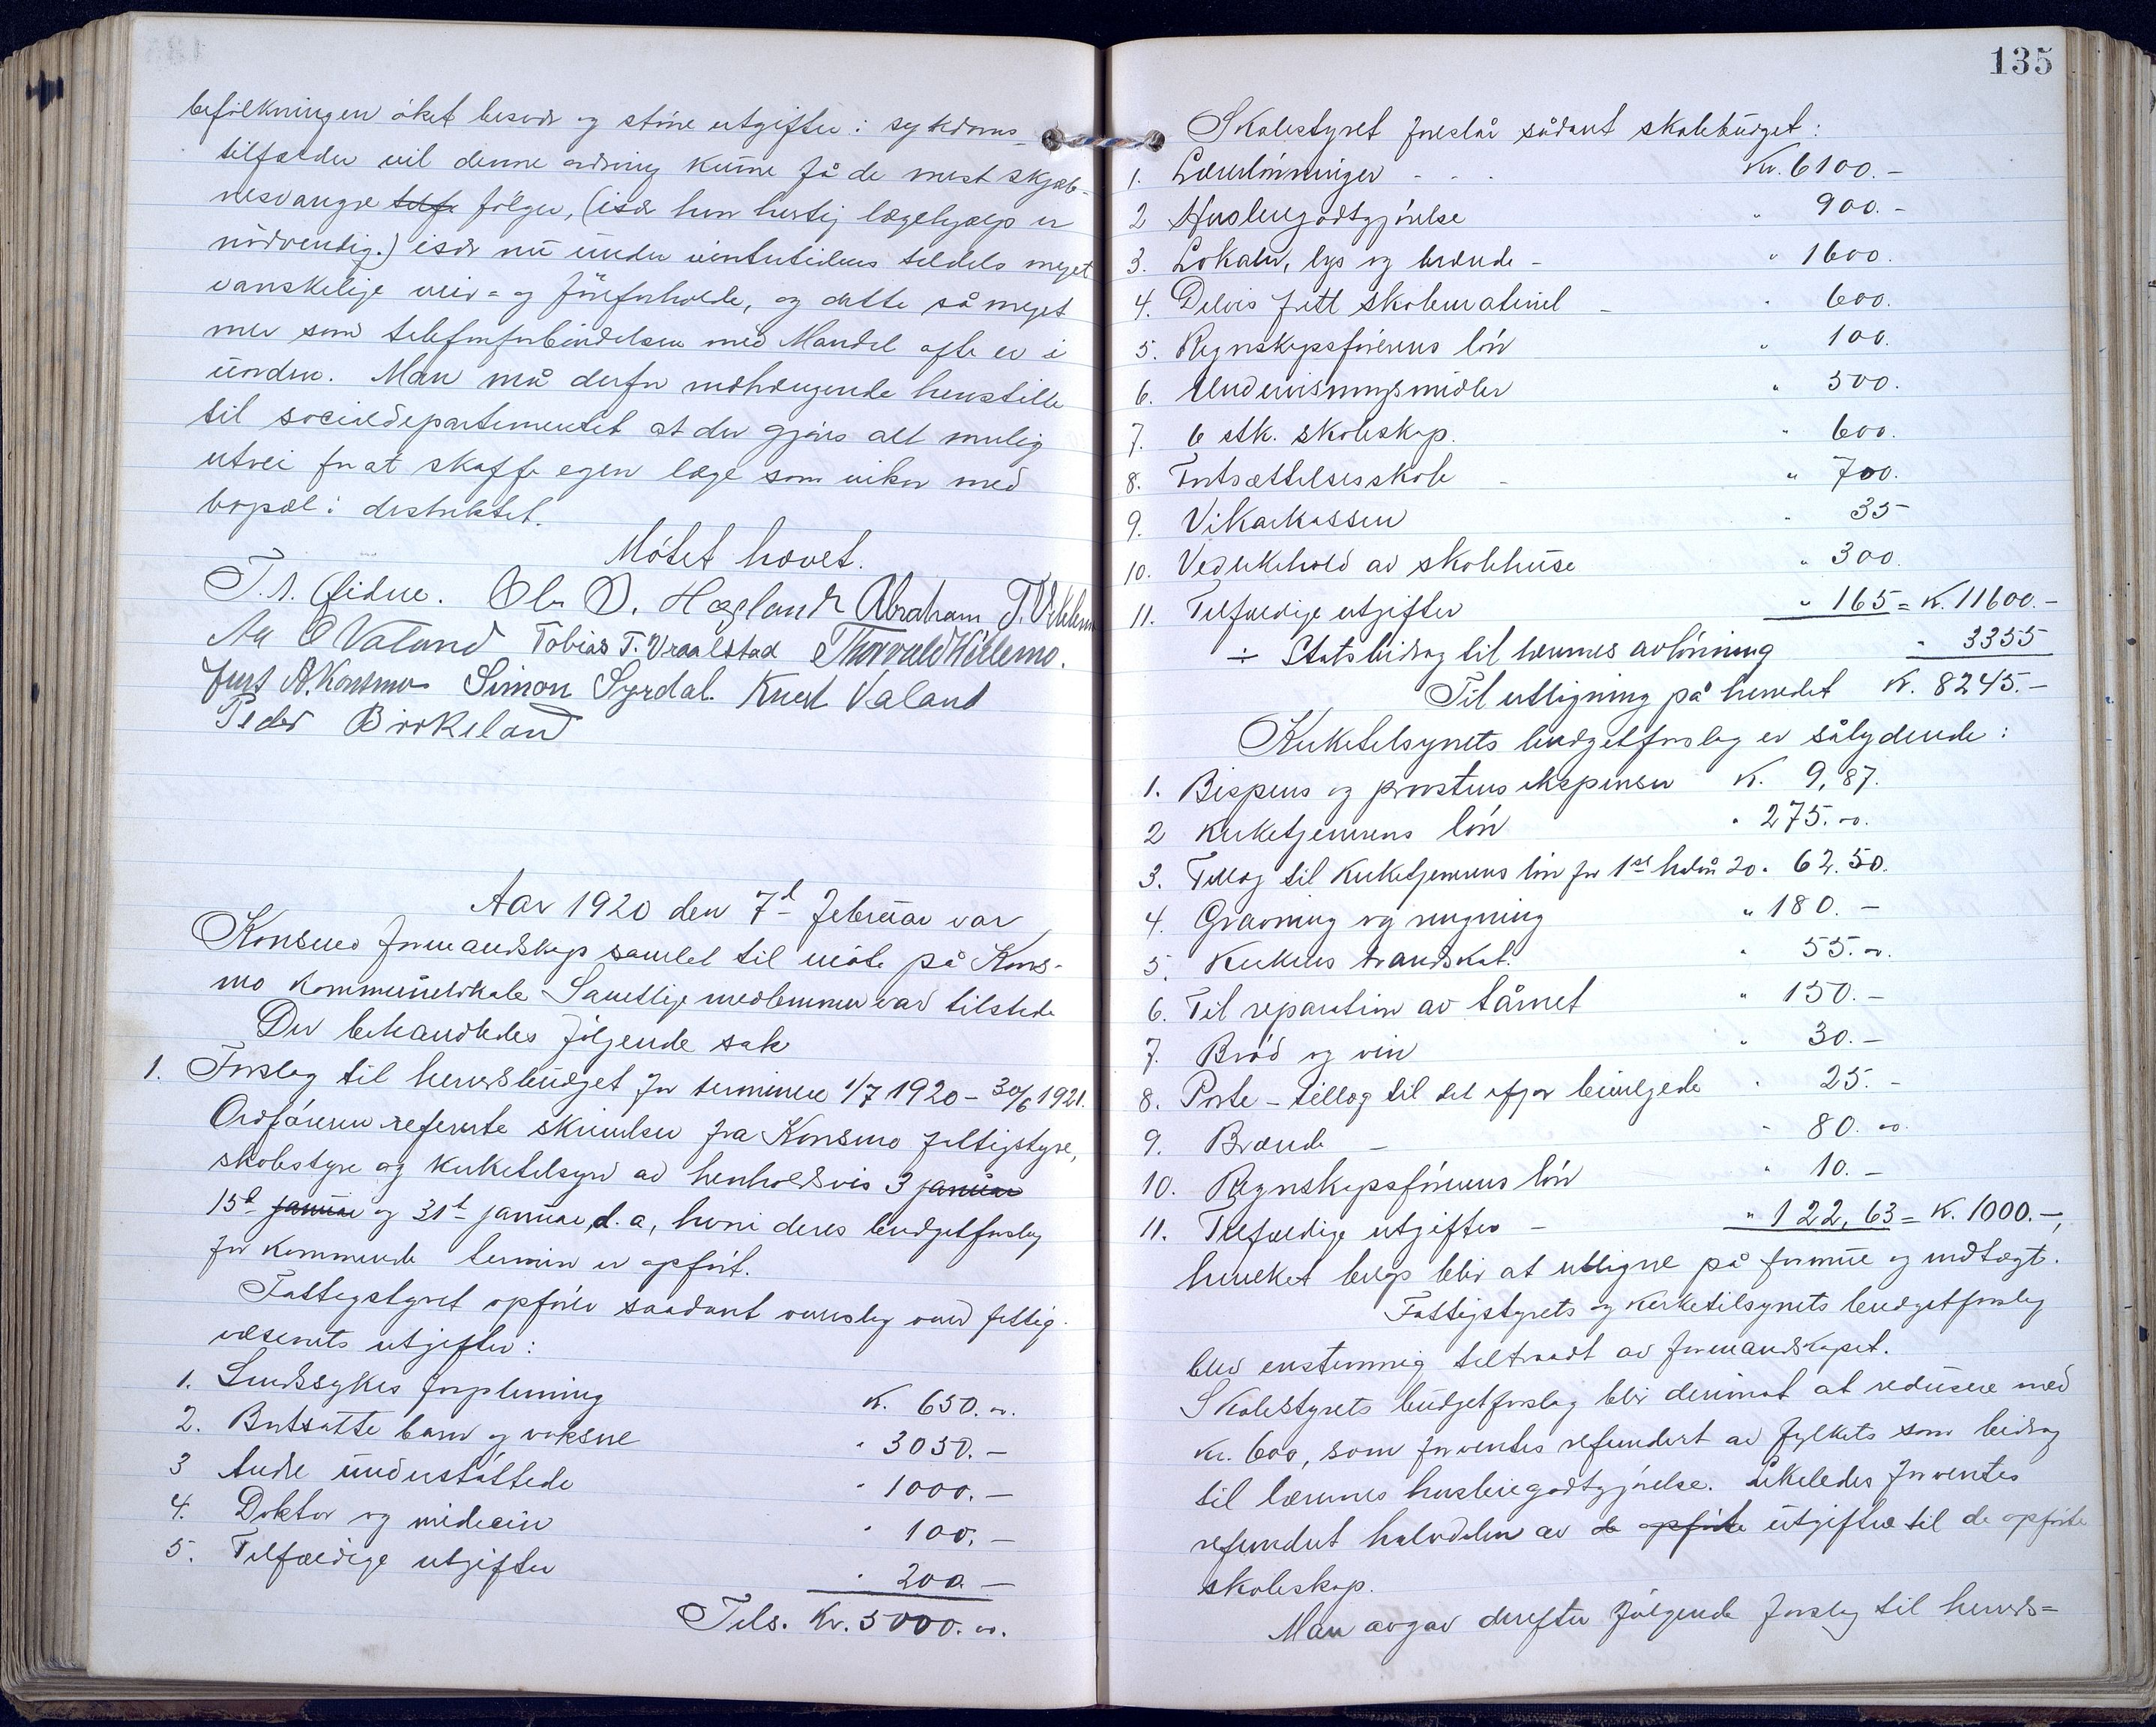 befolkningen øket besvær og større utgifter i sykdoms-
tilfælder vil denne ordning kunne få de mest skjæb-
nesvangre følger, (især hvor hurtig lægehjælp er
nødvendig.) især nu under vintertidens tildels meget
vanskelige veir- og føreforholde, og dette så meget
mer som telefonforbindelsen med Mandal ofte er i
uorden. Man må derfor indtrængende henstille
til socialdepartementet at der gjøres alt mulig
utvei for at skaffe egen læge som vikar med
bopæl i distriktet.
Møtet hævet.
T. A. Eidne. Ole O. Hægland Abraham T.
Aa O Valand Tobias T. Vraalstad Thorvald Hillemo.
Jens A. Konsmo Simon Syrdal. Knut Valand
Peder Birkeland
Aar 1920 den 7d februar var
Konsmo formandskap samlet til møte på Kons-
mo kommunelokale Samtlige medlemmer var tilstede
Der behandledes følgende sak
1. Forslag til herredsbudget for terminen 1/7 1920 - 30/6 1921.
Ordføreren refererte skrivelser fra Konsmo fattigstyre,
skolestyre og kirketilsyn av henholdsvis 3 januar
15d januar og 31d januar d. a, hvori deres budgetforslag
for kommende termin er opført.
Fattigstyret opfører saadant overslag over fattig-
væsenets utgifter:
1. Sindssykes forpleining K. 650.00.
2. Bortsatte barn og voksne " 3050.-
3 Andre understøttede " 1000.-
4. Doktor og medicin " 100.-
5. Tilfældige utgifter " 200.-
Tils. Kr. 5000.00.
135
Skolestyret foreslår sådant skolebudget:
1. Lærerlønninger - - - Kr. 6100.-
2 Husleiegodtgjørelse " 900.-
3. Lokaler, lys og brænde - " 1600.
4. Delvis fritt skolemateriel - " 600.
5. Regnskapsførerens løn " 100.
6. Undervisningsmidler " 500.
7. 6 stk. skoleskap. " 600.
8. Fortsættelsesskole - " 700.
9. Vikarkassen " 35
10. Vedlikehold av skolehuse " 300
11. Tilfældige utgifter " 165 = K. 11600.-
÷ Statsbidrag til lærernes avlønning " 3355
Til utligning på herredet K. 8245.-
Kirketilsynets budgetforslag er sålydende:
1. Bispens og provstens ekspenser K. 9,87.
2 Kirketjenerens løn " 275.00.
3. Tillæg til kirketjenerens løn for 1ste halvår 20 " 62.50.
4. Gravning og ringning " 180.-
5. Kirkens brandskat. " 55.00.
6. Til reparation av tårnet " 150.-
7. Brød og vin " 30.-
8. Porte - tillæg til det ifjor bevilgede " 25.-
9. Brænde - " 80.00.
10. Regnskapsførerens løn " 10.-
11. Tilfældige utgifter - " 122,63 = K. 1000.-,
hvilket beløp blir at utligne på formue og indtægt.
Fattigstyrets og kirketilsynets budgetforslag
blev enstemmig tiltraadt av formandskapet.
Skolestyrets budgetforslag blir derimot at redusere med
kr. 600, som forventes refundert av fylket som bidrag
til lærernes husleiegodtgjørelse. Likeledes forventes
refundert halvdelen av de opførte utgifter til de opførte
skoleskap.
Man avgav derefter følgende forslag til herreds=